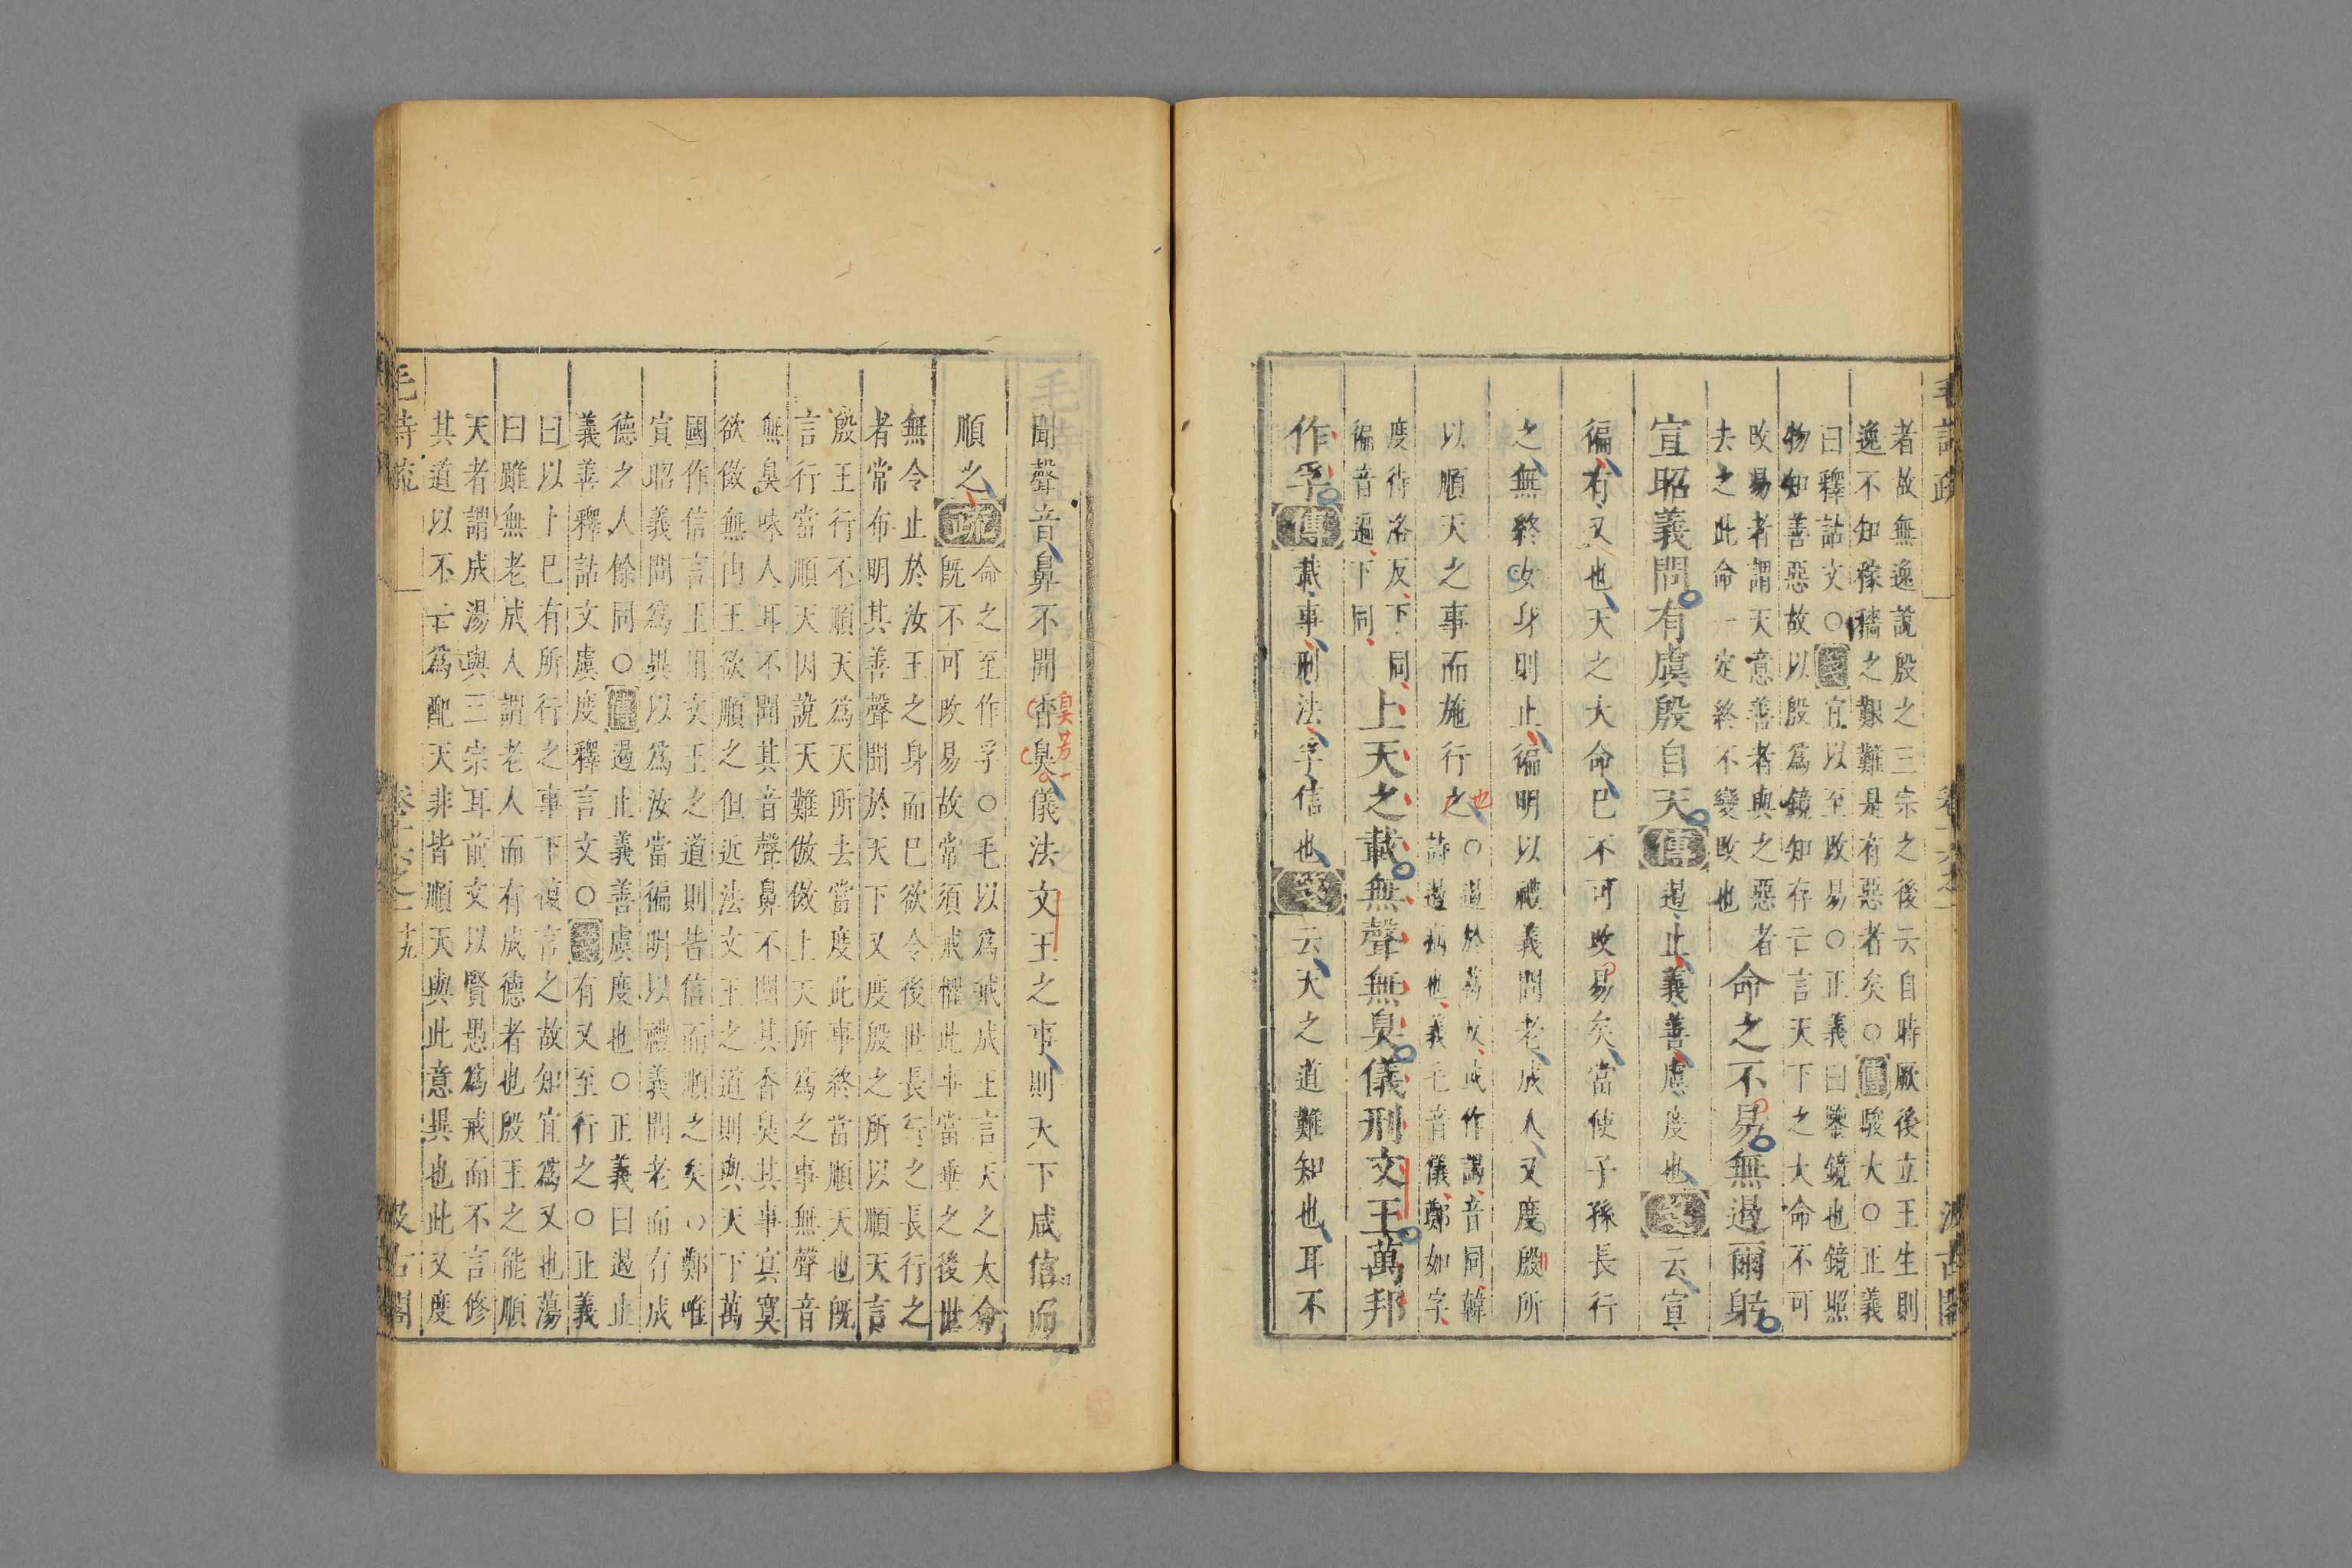 毛詩疏 卷十六之一 汲古閣
者故無逸說殷之三宗之後云自時厥後立王生則
逸不知稼穡之艱難是有惡者矣○傳駿大○正義
曰釋詁文○箋宜以至改易○正義曰鑒鏡也鏡照
物知善惡故以殷爲鏡知存亡言天下之大命不可
改易者謂天意善者與之惡者
去之此命一定終不變改也
命之不易無遏爾躬
宣昭義問有虞殷自天傳遏止義善虞度也箋云宣
徧有又也天之大命已不可改易矣當使子孫長行
之無終汝身則止徧明以禮義問老成人又度殷所
以順天之事而施行之也
○遏於葛反或作謁音同韓
詩遏病也義毛音儀鄭如字
度待洛反下同
徧音遍下同
上天之載無聲無臭儀刑文王萬邦
作孚傳載事刑法孚信也箋云天之道難知也耳不
聞聲音鼻不聞香臭儀法文王之事則天下咸信而
臭芳
順之疏
命之至作孚○毛以爲戒成王言天之大命
既不可改易故常須戒懼此事當垂之後世
無令止於汝王之身而已欲令後世長行之長行之
者常布明其善聲聞於天下又度殷之所以順天言
殷王行不順天爲天所去當度此事終當順天也既
言行當順天因說天難倣傚上天所爲之事無聲音
無臭味人耳不聞其音聲鼻不聞其香臭其事冥寞
欲倣無由王欲順之但近法文王之道則與天下萬
國作信言王用文王之道則皆信而順之矣○鄭唯
宣昭義問爲異以爲汝當徧明以禮義問老而有成
德之人餘同○傳遏止義善虞度也○正義曰遏止
義善釋詁文虞度釋言文○箋有又至行之○正義
曰以上已有所行之事下復言之故知宜爲又也蕩
曰雖無老成人謂老人而有成德者也殷王之能順
天者謂成湯與三宗耳前文以賢愚爲戒而不言修
其道以不亡爲配天非皆順天與此意異也此又度
毛詩疏 卷十六之一 十九 汲古閣